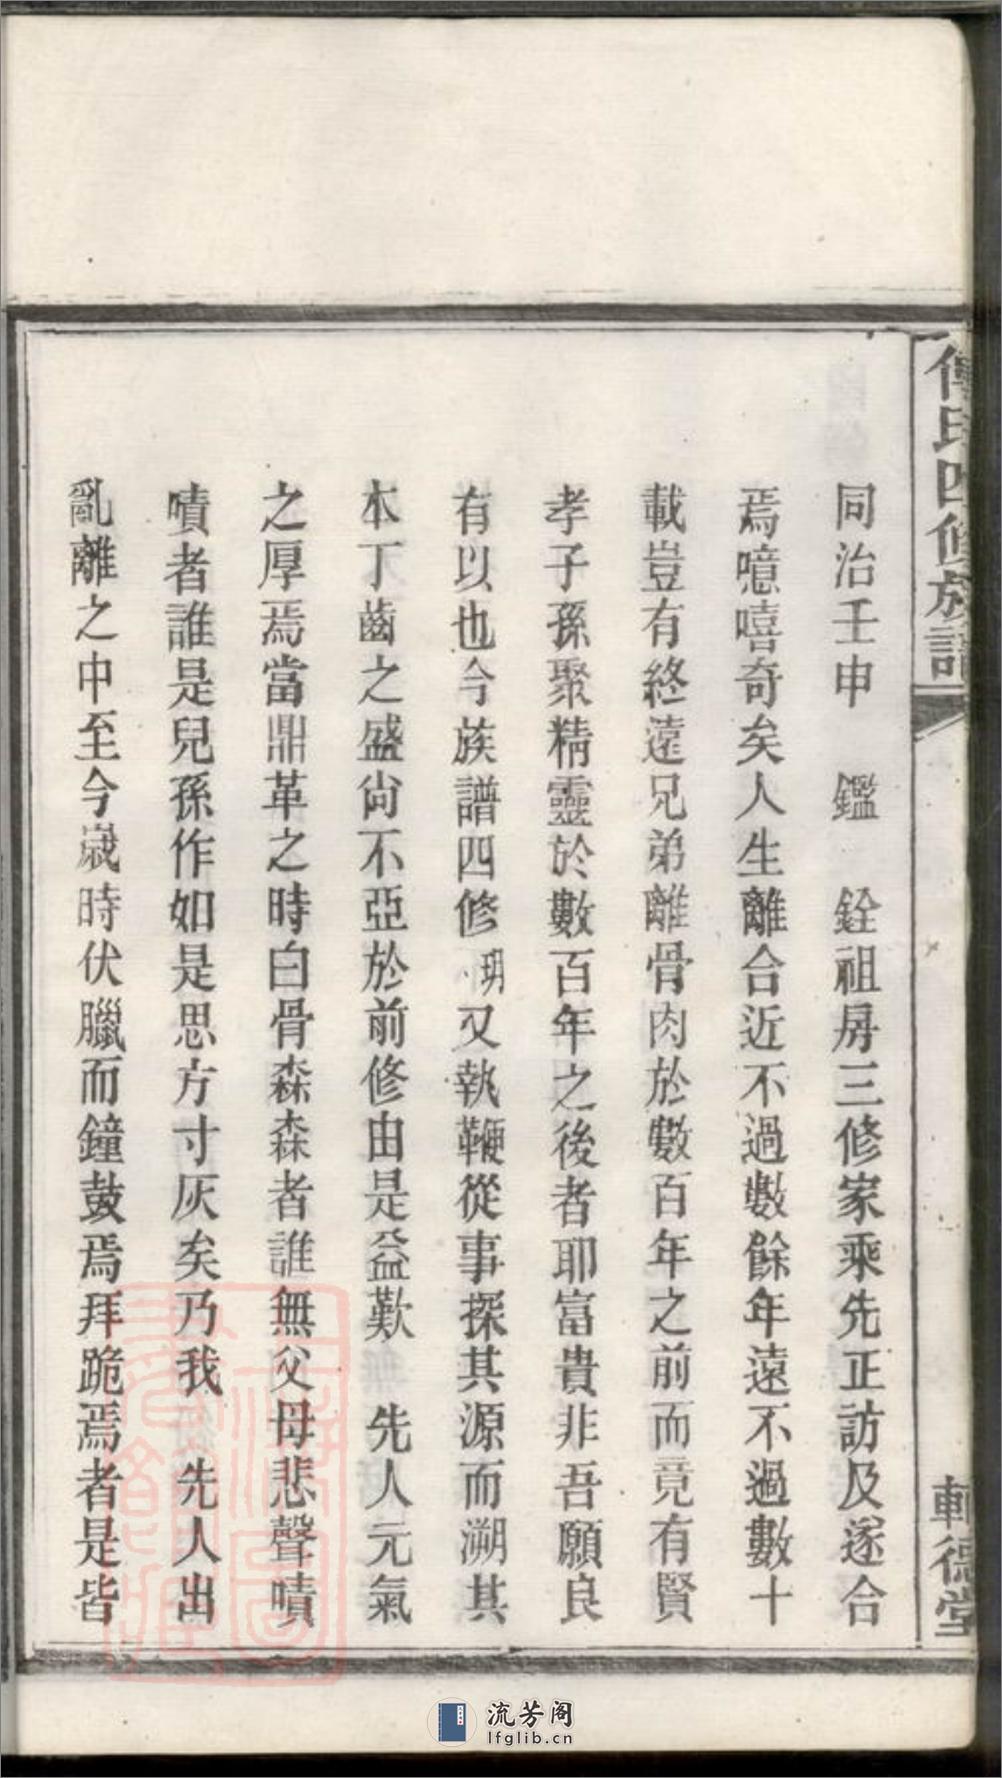 傅氏四修族譜
同治壬申　鑑　銓祖房三修家乘先正訪及遂合
焉噫嘻奇矣人生離合近不過數餘年遠不過數十
載豈有終遠兄弟離骨肉於數百年之前而竟有賢
孝子孫聚精靈於數百年之後者耶富貴非吾願良
有以也今族譜四修玥又執鞭從事探其源而溯其
本丁齒之盛尚不亞於前修由是益歎　先人元氣
之厚焉當鼎革之時白骨森森者誰無父母悲聲嘖
嘖者誰是兒孫作如是思方寸灰矣乃我　先人出
亂離之中至今歲時伏臘而鐘鼓焉拜跪焉者是皆
德堂
流芳阁
lfglib.cn